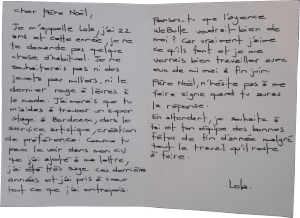 Cher Père Noël,
Je m'appelle Lola, j'ai 22
ans et cette année, je ne
te demande pas quelque
chose d'habituel. Je ne
souhaiterais pas ni des
jouets par milliers, ni le
dernier rouge à lèvres à
la mode. J'aimerais que tu
m'aides à trouver un super
stage à Bordeaux, dans le
service artistique, création
de préférence. Comme tu
peux le voir dans mon CV
que j'ai ajouté à ma lettre,
j'ai été très sage ces dernières
années et j'ai pris à cœur
tout ce que j'ai entrepris.
Penses-tu que l'agence
WeBulle voudrait bien de
moi ? Car vraiment j'aime
ce qu'ils font et je me
verrais bien travailler avec
eux de mi mai à fin juin.
Père Noël, n'hésite pas à me
faire signe quand tu auras
la réponse.
En attendant, je souhaite à
toi et ton équipe des bonnes
fêtes de fin d'année malgré
tout le travail qu'il reste
à faire.
Lola.